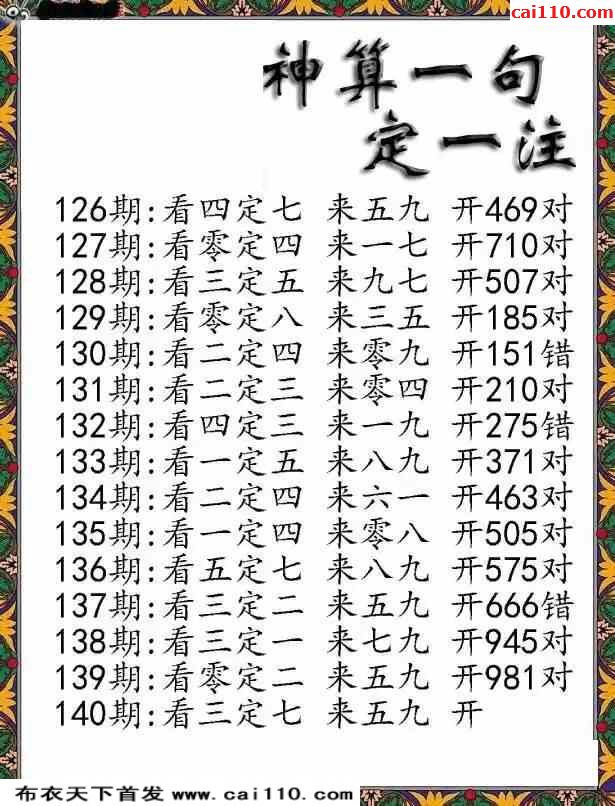 cai110.com
神算一句
定一注
126期:看四定七 来五九 开469对
127期:看零定四 来一七 开710对
128期:看三定五 来九七 开507对
129期:看零定八 来三五 开185对
130期:看二定四 来零九 开151错
131期:看二定三 来零四 开210对
132期:看四定三 来一九 开275错
133期:看一定五 来八九 开371对
134期:看二定四 来六一 开463对
135期:看一定四 来零八 开505对
136期:看五定七 来八九 开575对
137期:看三定二 来五九 开666错
138期:看三定一 来七九 开945对
139期:看零定二 来五九 开981对
140期:看三定七 来五九 开
布衣天下首发 www.cai110.com